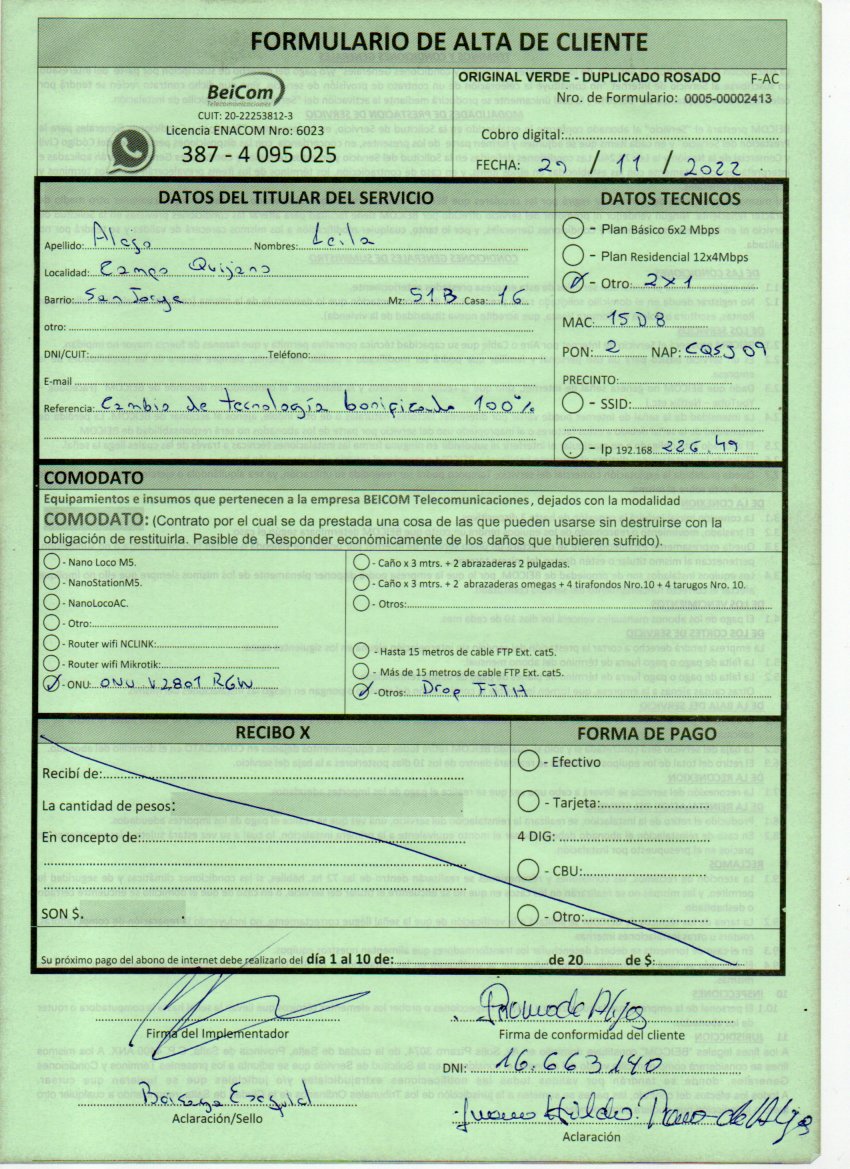 FORMULARIO DE ALTA DE CLIENTE
BeiCom
Telecomunicaciones
CUIT: 20-22253812-3
Licencia ENACOM Nro: 6023
387 - 4 095 025
ORIGINAL VERDE - DUPLICADO ROSADO F-AC
Nro. de Formulario: 0005-00002413
Cobro digital:
FECHA: 29 / 11 / 2022
DATOS DEL TITULAR DEL SERVICIO
Apellido: Alejo Nombres: Leila
Localidad: Campo Quijano
Barrio: San Jorge Mz: 51B Casa: 16
otro:
DNI/CUIT: Teléfono:
E-mail
Referencia: Cambio de tecnología bonificado 100%
DATOS TECNICOS
- Plan Básico 6x2 Mbps
- Plan Residencial 12x4Mbps
- Otro: 2x1
MAC: 15D8
PON: 2 NAP: CQSJ09
PRECINTO:
- SSID:
- Ip 192.168. 226.49
COMODATO
Equipamientos e insumos que pertenecen a la empresa BEICOM Telecomunicaciones, dejados con la modalidad
COMODATO: (Contrato por el cual se da prestada una cosa de las que pueden usarse sin destruirse con la
obligación de restituirla. Pasible de Responder económicamente de los daños que hubieren sufrido).
- Nano Loco M5.
- NanoStationM5.
- NanoLocoAC.
- Otro:
- Router wifi NCLINK:
- Router wifi Mikrotik:
- ONU: ONU V2801 RGW
- Caño x 3 mtrs. + 2 abrazaderas 2 pulgadas.
- Caño x 3 mtrs. + 2 abrazaderas omegas + 4 tirafondos Nro.10 + 4 tarugos Nro. 10.
- Otros:
- Hasta 15 metros de cable FTP Ext. cat5.
- Más de 15 metros de cable FTP Ext. cat5.
- Otros: Drop FTTH
RECIBO X
Recibí de:
La cantidad de pesos:
En concepto de:
SON $.
FORMA DE PAGO
- Efectivo
- Tarjeta:
4 DIG:
- CBU:
- Otro:
Su próximo pago del abono de internet debe realizarlo del día 1 al 10 de: de 20 de $:
Firma del Implementador
Firma de conformidad del cliente
DNI: 16.663.140
Aclaración/Sello
de Alejo
Aclaración